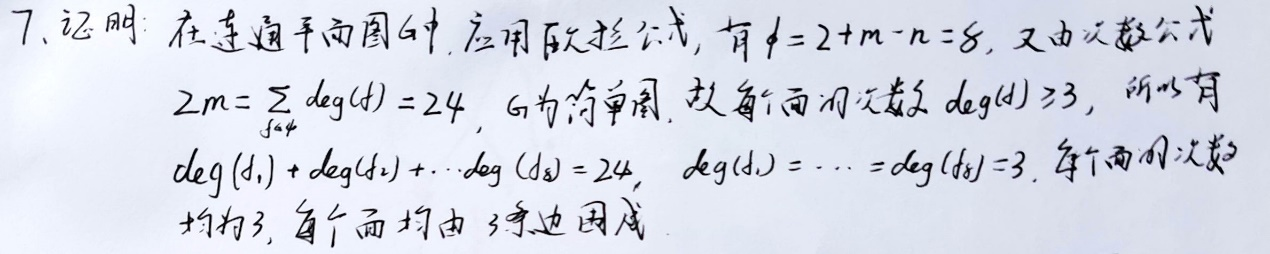 7、证明: 在连通平面图G中,应用欧拉公式,有φ=2+m-n=8,又由次数公式
2m=∑_{f∈φ} deg(f)=24, G为简单图,故每个面的次数 deg(f)≥3, 所以有
deg(f₁)+deg(f₂)+⋯deg(f₈)=24, deg(f₁)=⋯=deg(f₈)=3. 每个面的次数
均为3,每个面均由3条边围成.